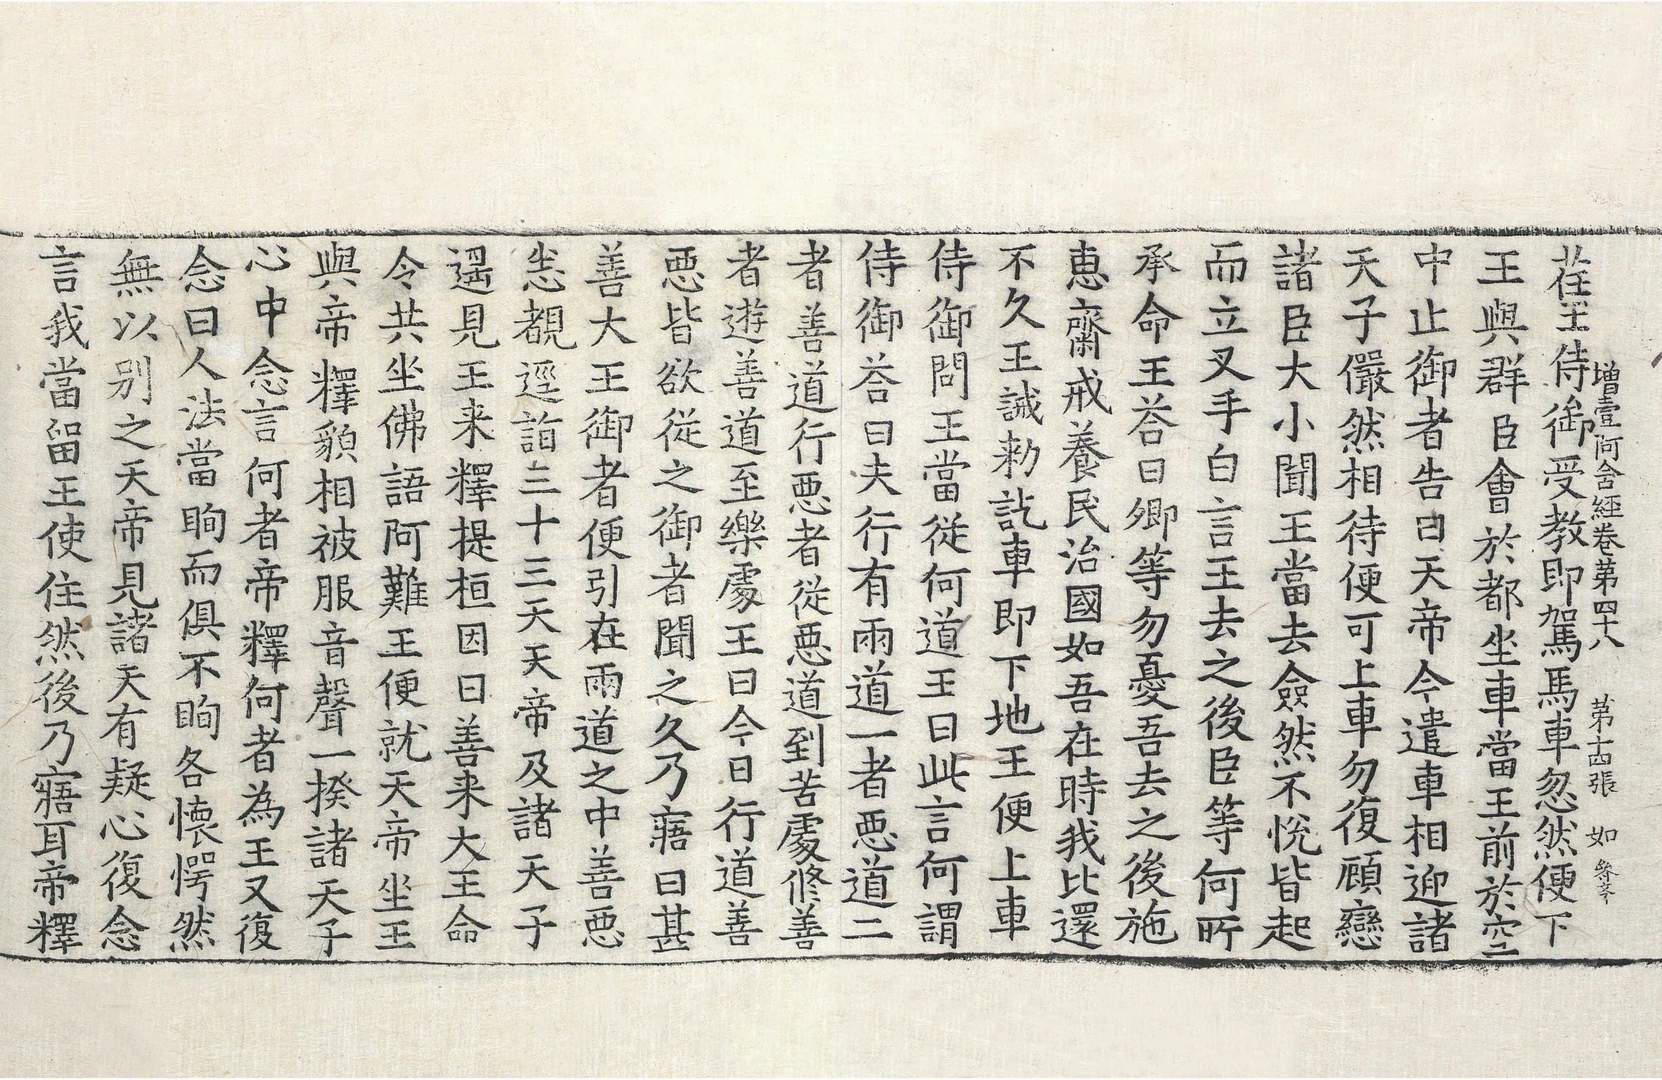 增壹阿含經卷第四十八 第十四張 如
茬王侍御受教即駕馬車忽然便下
王與群臣會於都坐車當王前於空
中止御者告曰天帝今遣車相迎諸
天子儼然相待便可上車勿復顧戀
諸臣大小聞王當去僉然不悅皆起
而立叉手白言王去之後臣等何所
承命王荅曰卿等勿憂吾去之後施
惠齋戒養民治國如吾在時我比還
不久王誡勑訖車即下地王便上車
侍御問王當從何道王曰此言何謂
侍御荅曰夫行有兩道一者惡道二
者善道行惡者從惡道到苦處修善
者遊善道至樂處王曰今日行道善
惡皆欲從之御者聞之久乃寤曰甚
善大王御者便引在兩道之中善惡
悉覩逕詣三十三天天帝及諸天子
遥見王来釋提桓因曰善来大王命
令共坐佛語阿難王便就天帝坐王
與帝釋貌相被服音聲一揆諸天子
心中念言何者帝釋何者為王又復
念曰人法當眴而俱不眴各懷愕然
無以别之天帝見諸天有疑心復念
言我當留王使住然後乃寤耳帝釋